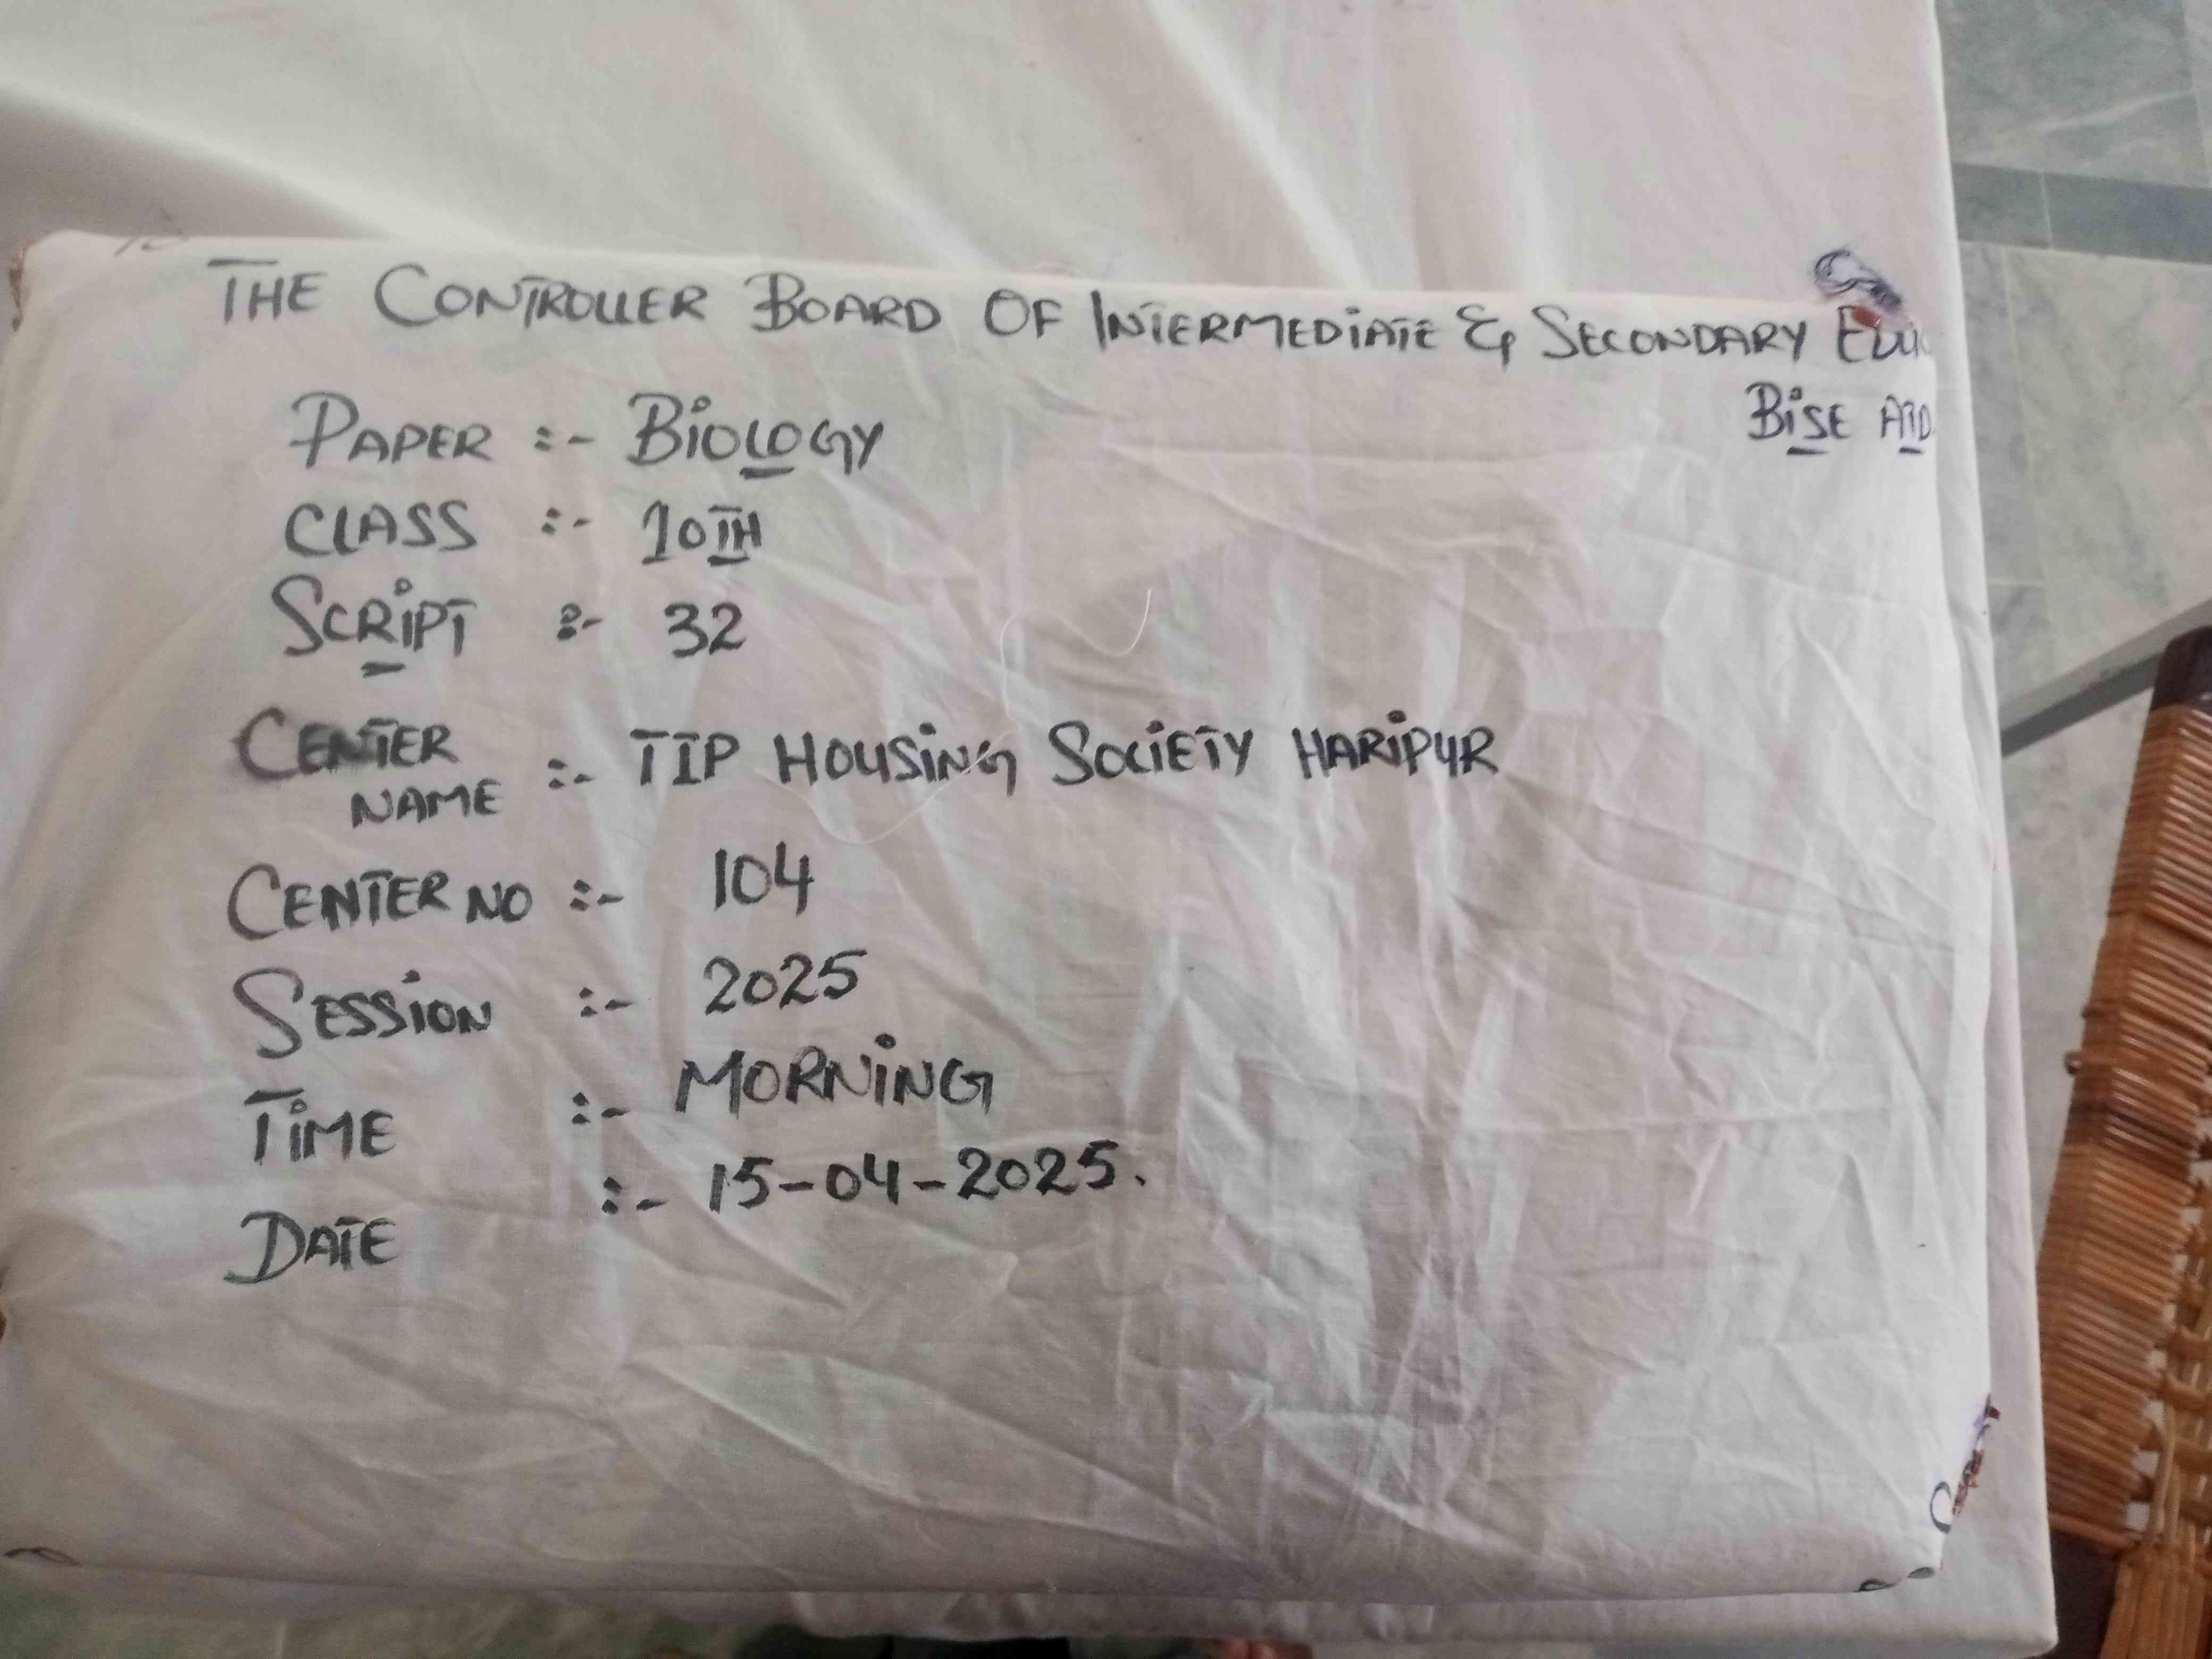 THE CONTROLLER BOARD OF INTERMEDIATE & SECONDARY
BISE ATD
PAPER :- BIOLOGY
CLASS :- 10TH
SCRIPT :- 32
CENTER NAME :- TIP HOUSING SOCIETY HARIPUR
CENTER NO :- 104
SESSION :- 2025
TIME :- MORNING
DATE :- 15-04-2025.